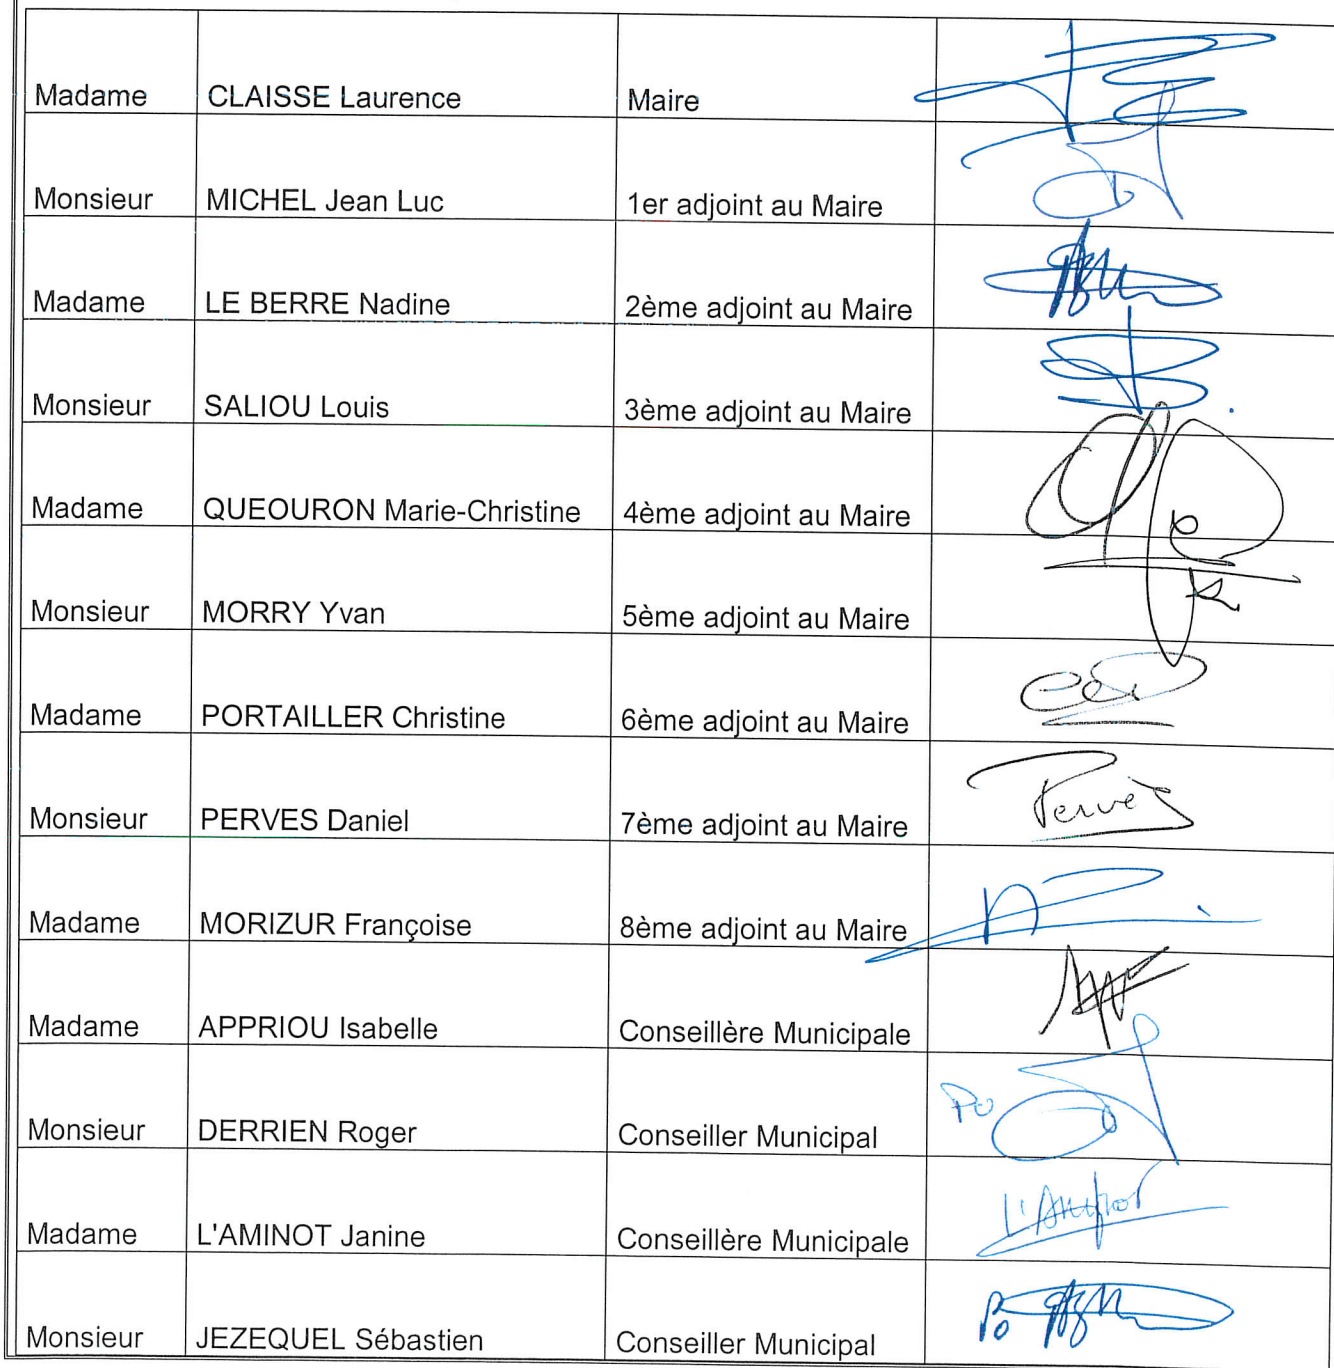 Madame CLAISSE Laurence Maire
Monsieur MICHEL Jean Luc 1er adjoint au Maire
Madame LE BERRE Nadine 2ème adjoint au Maire
Monsieur SALIOU Louis 3ème adjoint au Maire
Madame QUEOURON Marie-Christine 4ème adjoint au Maire
Monsieur MORRY Yvan 5ème adjoint au Maire
Madame PORTAILLER Christine 6ème adjoint au Maire
Monsieur PERVES Daniel 7ème adjoint au Maire Pervès
Madame MORIZUR Françoise 8ème adjoint au Maire
Madame APPRIOU Isabelle Conseillère Municipale
Monsieur DERRIEN Roger Conseiller Municipal Po
Madame L'AMINOT Janine Conseillère Municipale L'Aminot
Monsieur JEZEQUEL Sébastien Conseiller Municipal Po